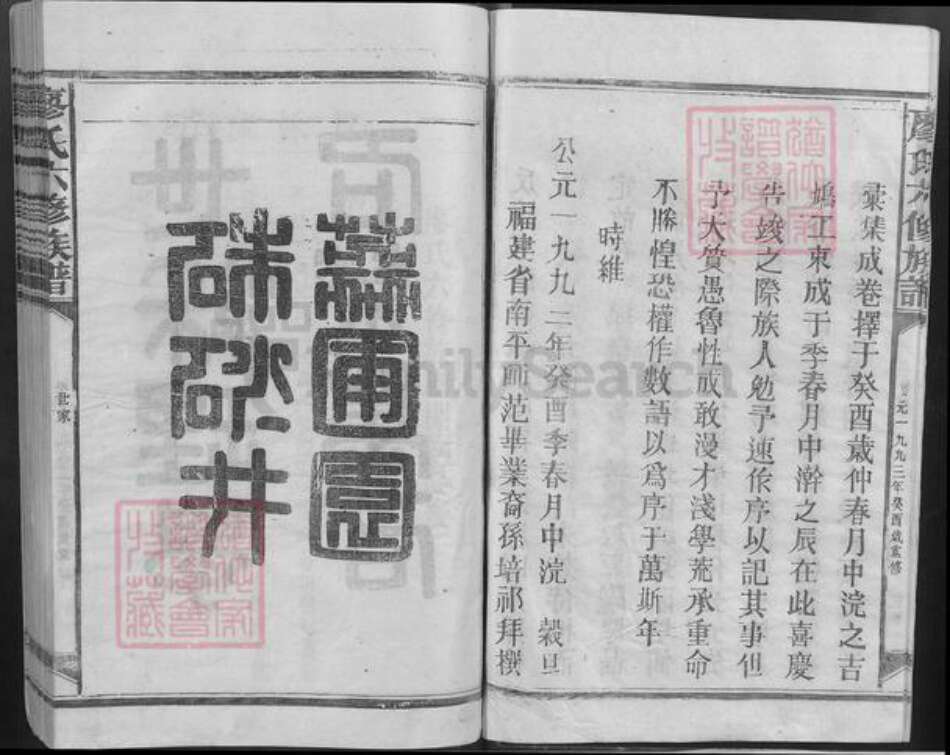 廖氏六修族譜
公元一九九三年癸酉歲嵗修
彙集成卷擇于癸酉歲仲春月中浣之吉
鳩工東成于季春月中澣之辰在此喜慶
告竣之際族人勉予速作序以記其事但
予大質愚魯性成敢漫才淺學荒承重命
不勝惶恐權作數語以爲序于萬斯年
時維
公元一九九三年癸酉季春月中浣 穀旦
福建省南平師范畢業裔孫培祁拜撰
圃園
硃砂井
廖氏六修族譜
世家
FamilySearch